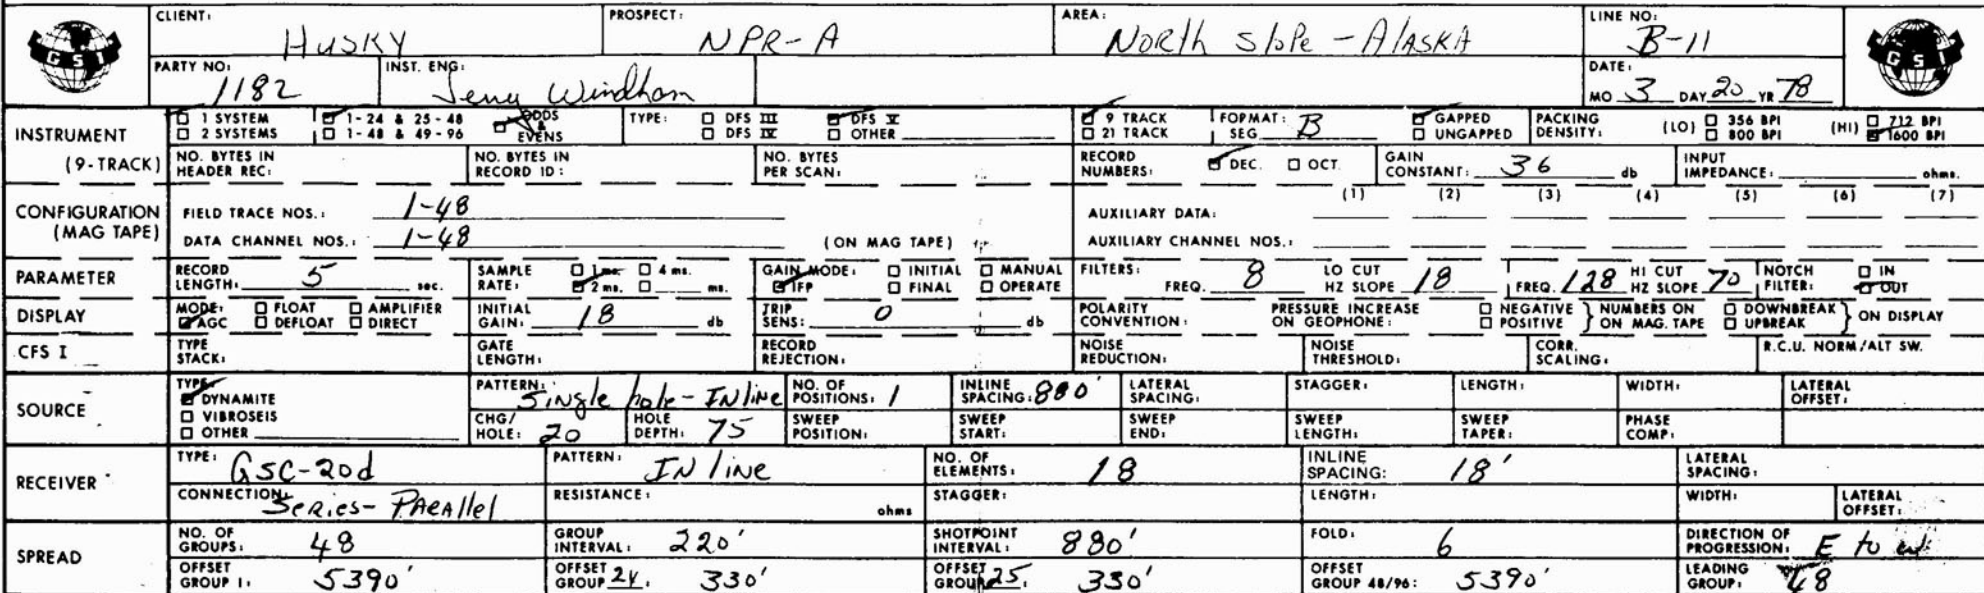 CLIENT: Husky PROSPECT: NPR-A AREA: North Slope - Alaska LINE NO: B-11
GSI GSI
PARTY NO: 1182 INST. ENG: Jerry Windham DATE: MO 3 DAY 20 YR 78
INSTRUMENT (9-TRACK)
1 SYSTEM 1-24 & 25-48 ODDS & EVENS TYPE: DFS III DFS V 9 TRACK FORMAT: SEG B GAPPED PACKING DENSITY: (LO) 356 BPI (HI) 712 BPI
2 SYSTEMS 1-48 & 49-96 DFS IV OTHER 21 TRACK UNGAPPED 800 BPI 1600 BPI
NO. BYTES IN HEADER REC: NO. BYTES IN RECORD ID: NO. BYTES PER SCAN: RECORD NUMBERS: DEC. OCT. GAIN CONSTANT: 36 db INPUT IMPEDANCE: ohms.
CONFIGURATION (MAG TAPE)
(1) (2) (3) (4) (5) (6) (7)
FIELD TRACE NOS.: 1-48 AUXILIARY DATA:
DATA CHANNEL NOS.: 1-48 (ON MAG TAPE) AUXILIARY CHANNEL NOS.:
PARAMETER RECORD LENGTH: 5 sec. SAMPLE RATE: 1 ms. 4 ms. 2 ms. ms. GAIN MODE: INITIAL MANUAL IFP FINAL OPERATE FILTERS: FREQ. 8 LO CUT HZ SLOPE 18 FREQ. 128 HI CUT HZ SLOPE 70 NOTCH FILTER: IN OUT
DISPLAY MODE: FLOAT AMPLIFIER AGC DEFLOAT DIRECT INITIAL GAIN: 18 db TRIP SENS: 0 db POLARITY CONVENTION: PRESSURE INCREASE ON GEOPHONE: NEGATIVE POSITIVE } NUMBERS ON MAG. TAPE DOWNBREAK UPBREAK } ON DISPLAY
CFS I TYPE STACK: GATE LENGTH: RECORD REJECTION: NOISE REDUCTION: NOISE THRESHOLD: CORR. SCALING: R.C.U. NORM/ALT SW.
SOURCE TYPE: DYNAMITE VIBROSEIS OTHER
PATTERN: Single hole - Inline NO. OF POSITIONS: 1 INLINE SPACING: 880' LATERAL SPACING: STAGGER: LENGTH: WIDTH: LATERAL OFFSET:
CHG/HOLE: 20 HOLE DEPTH: 75 SWEEP POSITION: SWEEP START: SWEEP END: SWEEP LENGTH: SWEEP TAPER: PHASE COMP:
RECEIVER TYPE: GSC-20d PATTERN: Inline NO. OF ELEMENTS: 18 INLINE SPACING: 18' LATERAL SPACING:
CONNECTION: Series-Parallel RESISTANCE: ohms STAGGER: LENGTH: WIDTH: LATERAL OFFSET:
SPREAD NO. OF GROUPS: 48 GROUP INTERVAL: 220' SHOTPOINT INTERVAL: 880' FOLD: 6 DIRECTION OF PROGRESSION: E to W
OFFSET GROUP 1: 5390' OFFSET GROUP 24: 330' OFFSET GROUP 25: 330' OFFSET GROUP 48/96: 5390' LEADING GROUP: 48